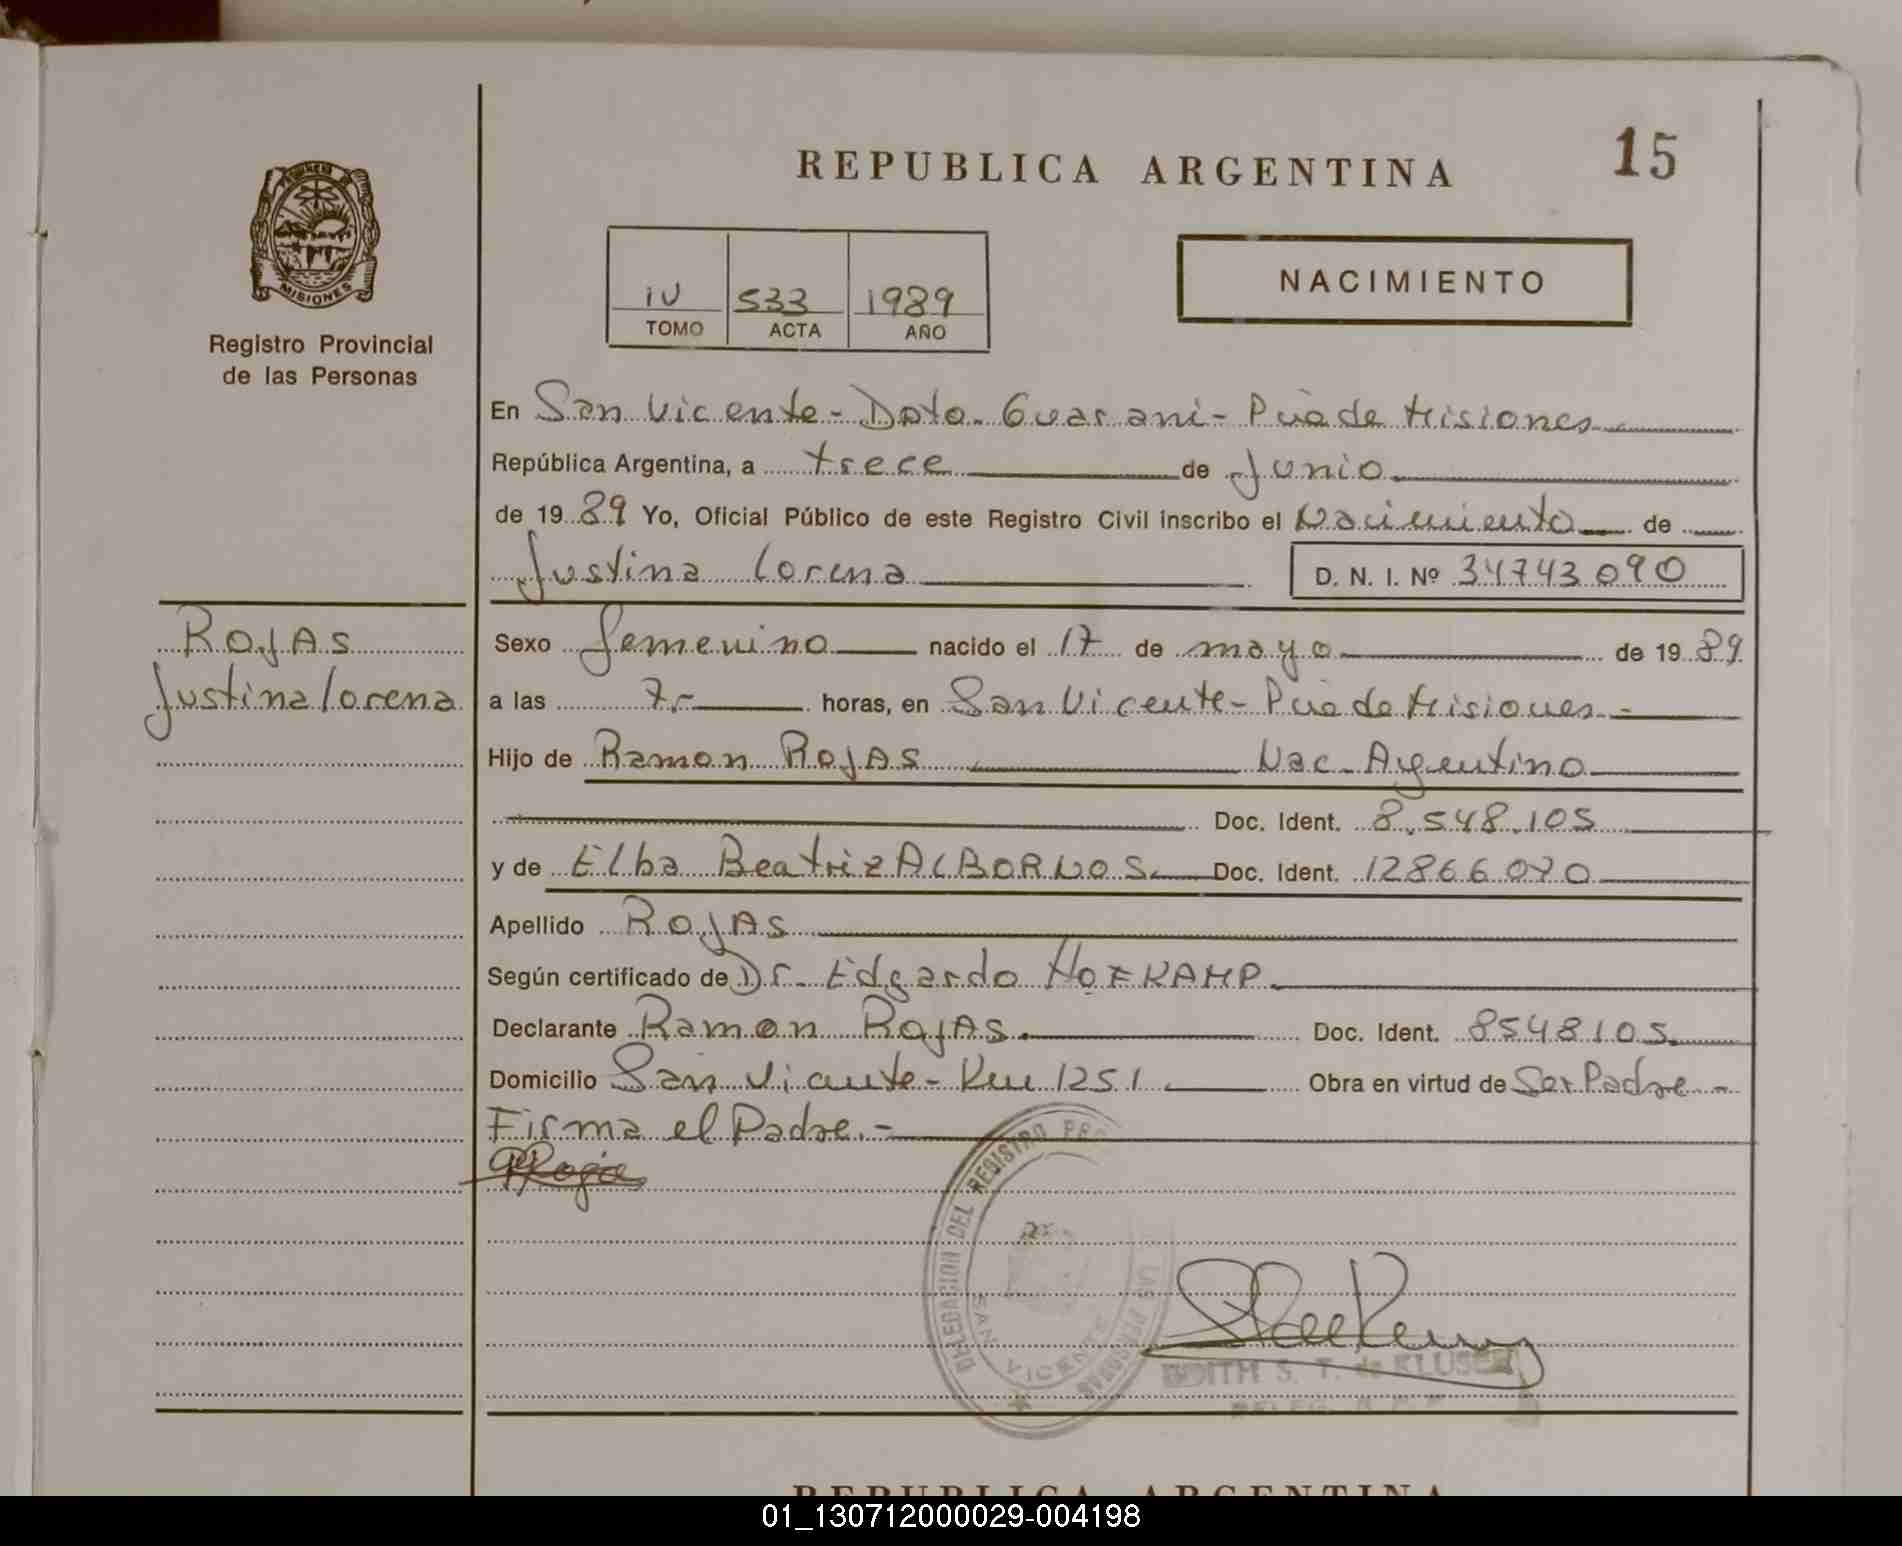 REPUBLICA ARGENTINA 15
MISIONES
Registro Provincial
de las Personas
iV 533 1989
TOMO ACTA AÑO
NACIMIENTO
En San Vicente - Dpto. Guarani - Pcia de Misiones
República Argentina, a trece de Junio
de 19 89 Yo, Oficial Público de este Registro Civil inscribo el Nacimiento de
Justina Lorena D. N. I. Nº 34743090
ROJAS
Justina Lorena
Sexo femenino nacido el 17 de mayo de 19 89
a las 7.- horas, en San Vicente - Pcia de Misiones.-
Hijo de Ramon ROJAS Nac. Argentino
Doc. Ident. 8.548.105
y de Elba Beatriz ALBORNOS. Doc. Ident. 12866070
Apellido ROJAS
Según certificado de Dr. Edgardo HOFKAMP.
Declarante Ramon ROJAS. Doc. Ident. 8548105.
Domicilio San Vicente - Km 1251 Obra en virtud de Ser Padre -
Firma el Padre.-
DELEGACION DEL REGISTRO PRO LAS PERSONAS
SAN VICENTE
EDITH S. T. de KLUSE
DELEG. R. P. P.
REPUBLICA ARGENTINA
01_130712000029-004198